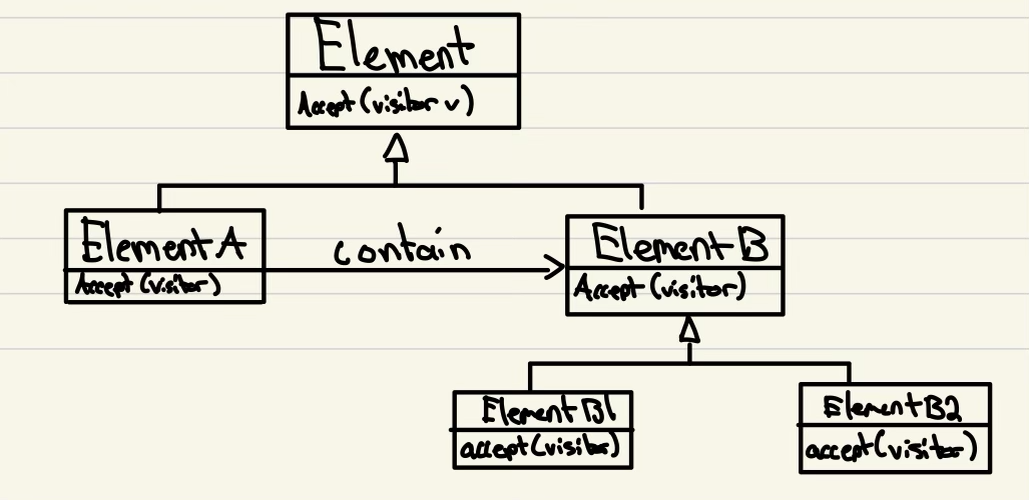 Element
Accept(visitor v)
Element A
Accept (visitor)
contain
Element B
Accept (visitor)
Element B1
accept(visitor)
Element B2
accept(visitor)